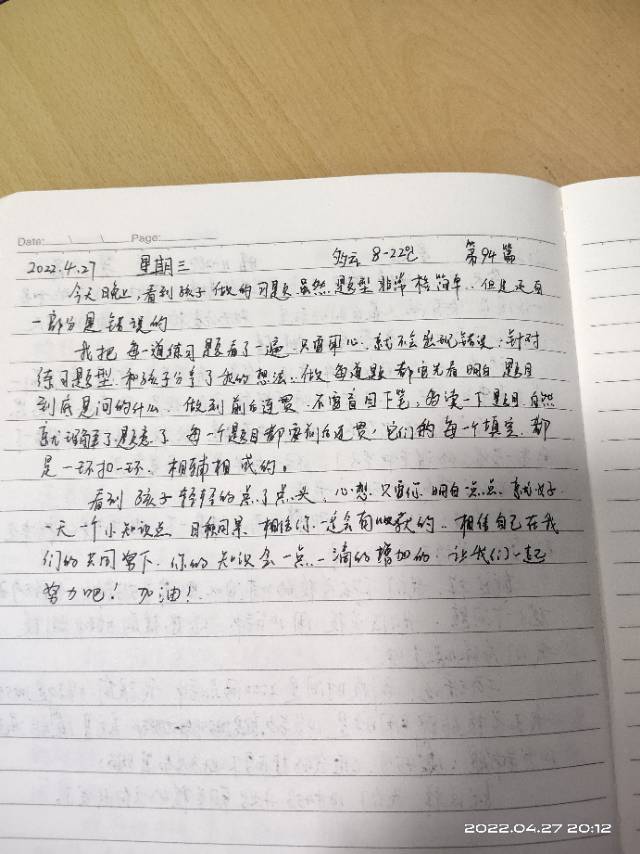 Date: \ \ Page:
2022.4.27 星期三 多云 8-22℃ 第94篇
今天晚上,看到孩子做的习题虽然题型非常格简单.但是还有
一部分是错误的
我把每一道练习题看了一遍 只要用心.就不会出现错误.针对
练习题型.和孩子分享了我的想法.做每道题都要先看明白题目
到底是问的什么.做到前后连贯.不要盲目下笔,每读一下题目自然
就理解了题意了 每一个题目都要前后连贯,它们的每一个填空.都
是一环扣一环.相辅相成的。
看到孩子轻轻的点了点头,心想.只要你明白一点点就好.
一天一个小知识点 日积月累.相信你一定会有收获的.相信自己在我
们的共同努力下.你的知识会一点一滴的增加的.让我们一起
努力吧!加油!
2022.04.27 20:12